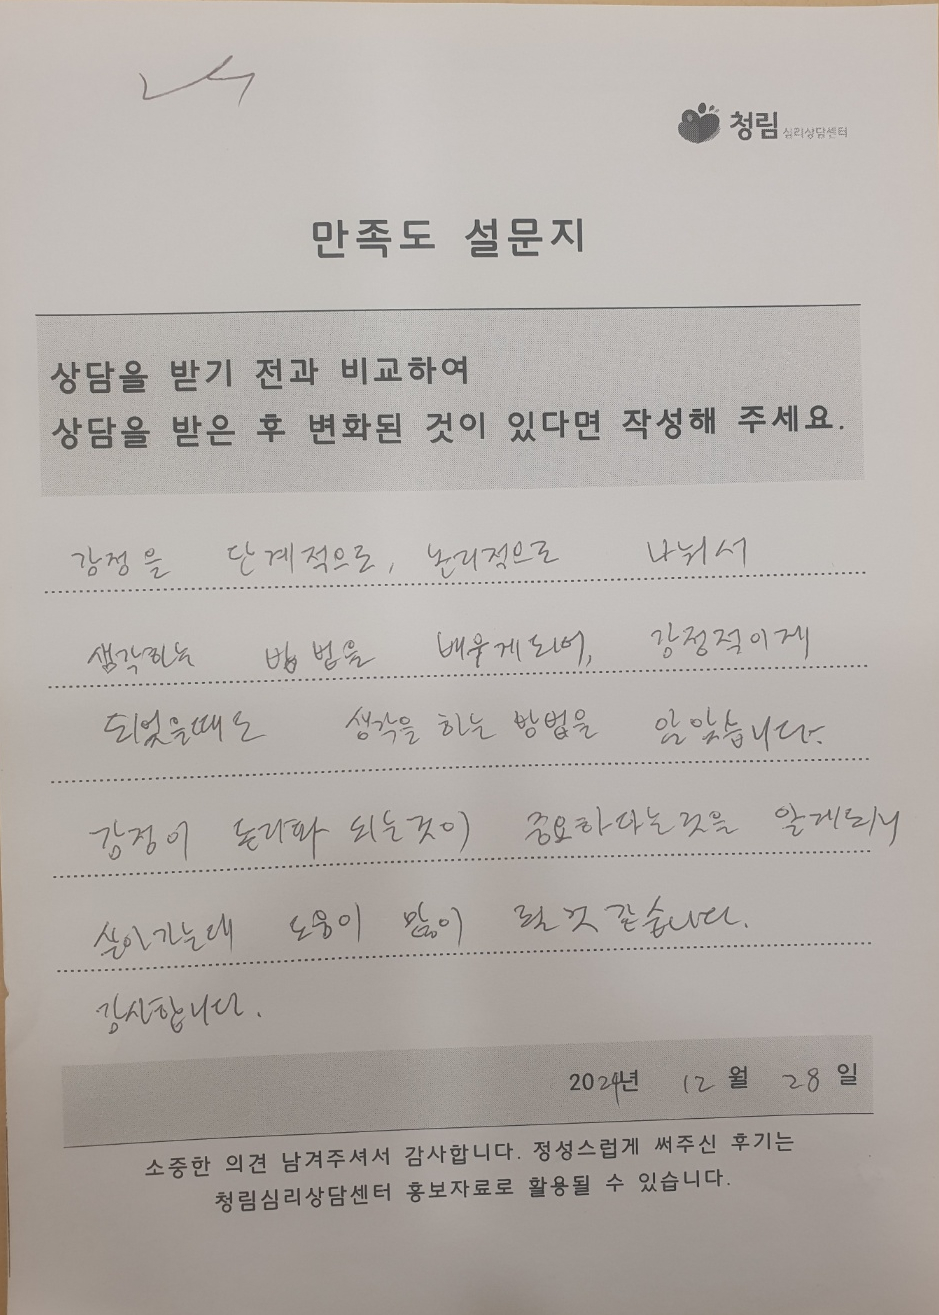 청림 심리상담센터
만족도 설문지
상담을 받기 전과 비교하여
상담을 받은 후 변화된 것이 있다면 작성해 주세요.
감정을 단계적으로, 논리적으로 나눠서
생각하는 방법을 배울게되어, 감정적이게
되었을때도 생각을 하는 방법을 알았습니다.
감정이 되는것이 중요하다는것을 알게되니
살아가는데 도움이 많이 될것 같습니다.
감사합니다.
2024년 12월 28일
소중한 의견 남겨주셔서 감사합니다. 정성스럽게 써주신 후기는
청림심리상담센터 홍보자료로 활용될 수 있습니다.